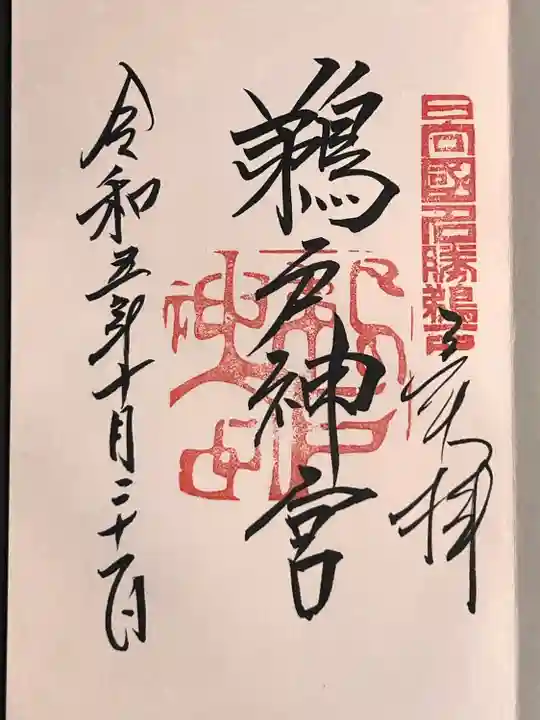 日向國名勝鵜戸
奉拝
鵜戸神宮
鵜戸神宮
令和五年十月二十一日